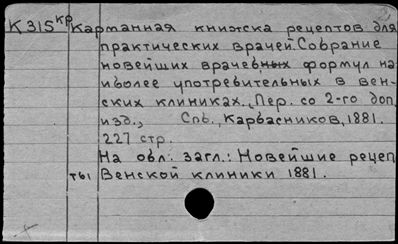 К 315 кр Карманная книжска рецептов для
практических врачей. Собрание
новейших врачебных формул на
иболее употребительных в вен-
ских клиниках. Пер. со 2-го доп.
изд., Спб., Карбасников, 1881.
227 стр.
На обл. загл.: Новейшие рецеп
ты Венской клиники 1881.